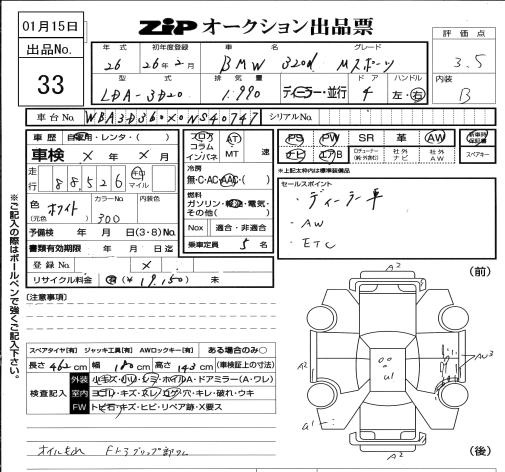 01月15日
ZiP オークション出品票
評価点
3.5
出品No.
33
内装
B
年式 初年度登録 車名 グレード
26 26年2月 BMW 320d Mスポーツ
型式 排気量 ドア ハンドル
LDA-3D20 1,990 ディーラー・並行 4 左・右
車台No. WBA3D36 NS40747 シリアルNo.
車歴 自家用・レンタ・( )
車検 × 年 × 月
走行 88,526 キロ マイル
色(元色) ホワイト カラーNo. 300 内装色
予備検 年 月 日(3・8)No.
書類有効期限 年 月 日迄
登録No. ×
リサイクル料金 済(¥19,150) 未
フロア コラム インパネ AT MT 速
冷房
無・C・AC・AAC・( )
燃料
ガソリン・軽油・電気・その他( )
Nox 適合・非適合
乗車定員 5 名
PS PW SR 革 AW 新車時保証書
ナビ エアB 社外ナビ 社外AW スペアキー
※上記太枠内は標準装備品
セールスポイント
・ディーラー車
・AW
・ETC
※ご記入の際はボールペンで強くご記入下さい。
[注意事項]
スペアタイヤ[有] ジャッキ工具[有] AWロックキー[有] ある場合のみ○
長さ 462 cm 幅 180 cm 高さ 143 cm (車検証上の寸法)
検査記入
外装 小キズ・小ヘコ・シミ・ホイルA・ドアミラー(A・ワレ)
室内 ヨゴレ・キズ・スレ・コゲ・穴・キレ・破れ・ウキ
FW トビ石・キズ・ヒビ・リペア跡・X要ス
オイルもれ
(前)
A2
A2
U1
AU3
A1
A2
(後)